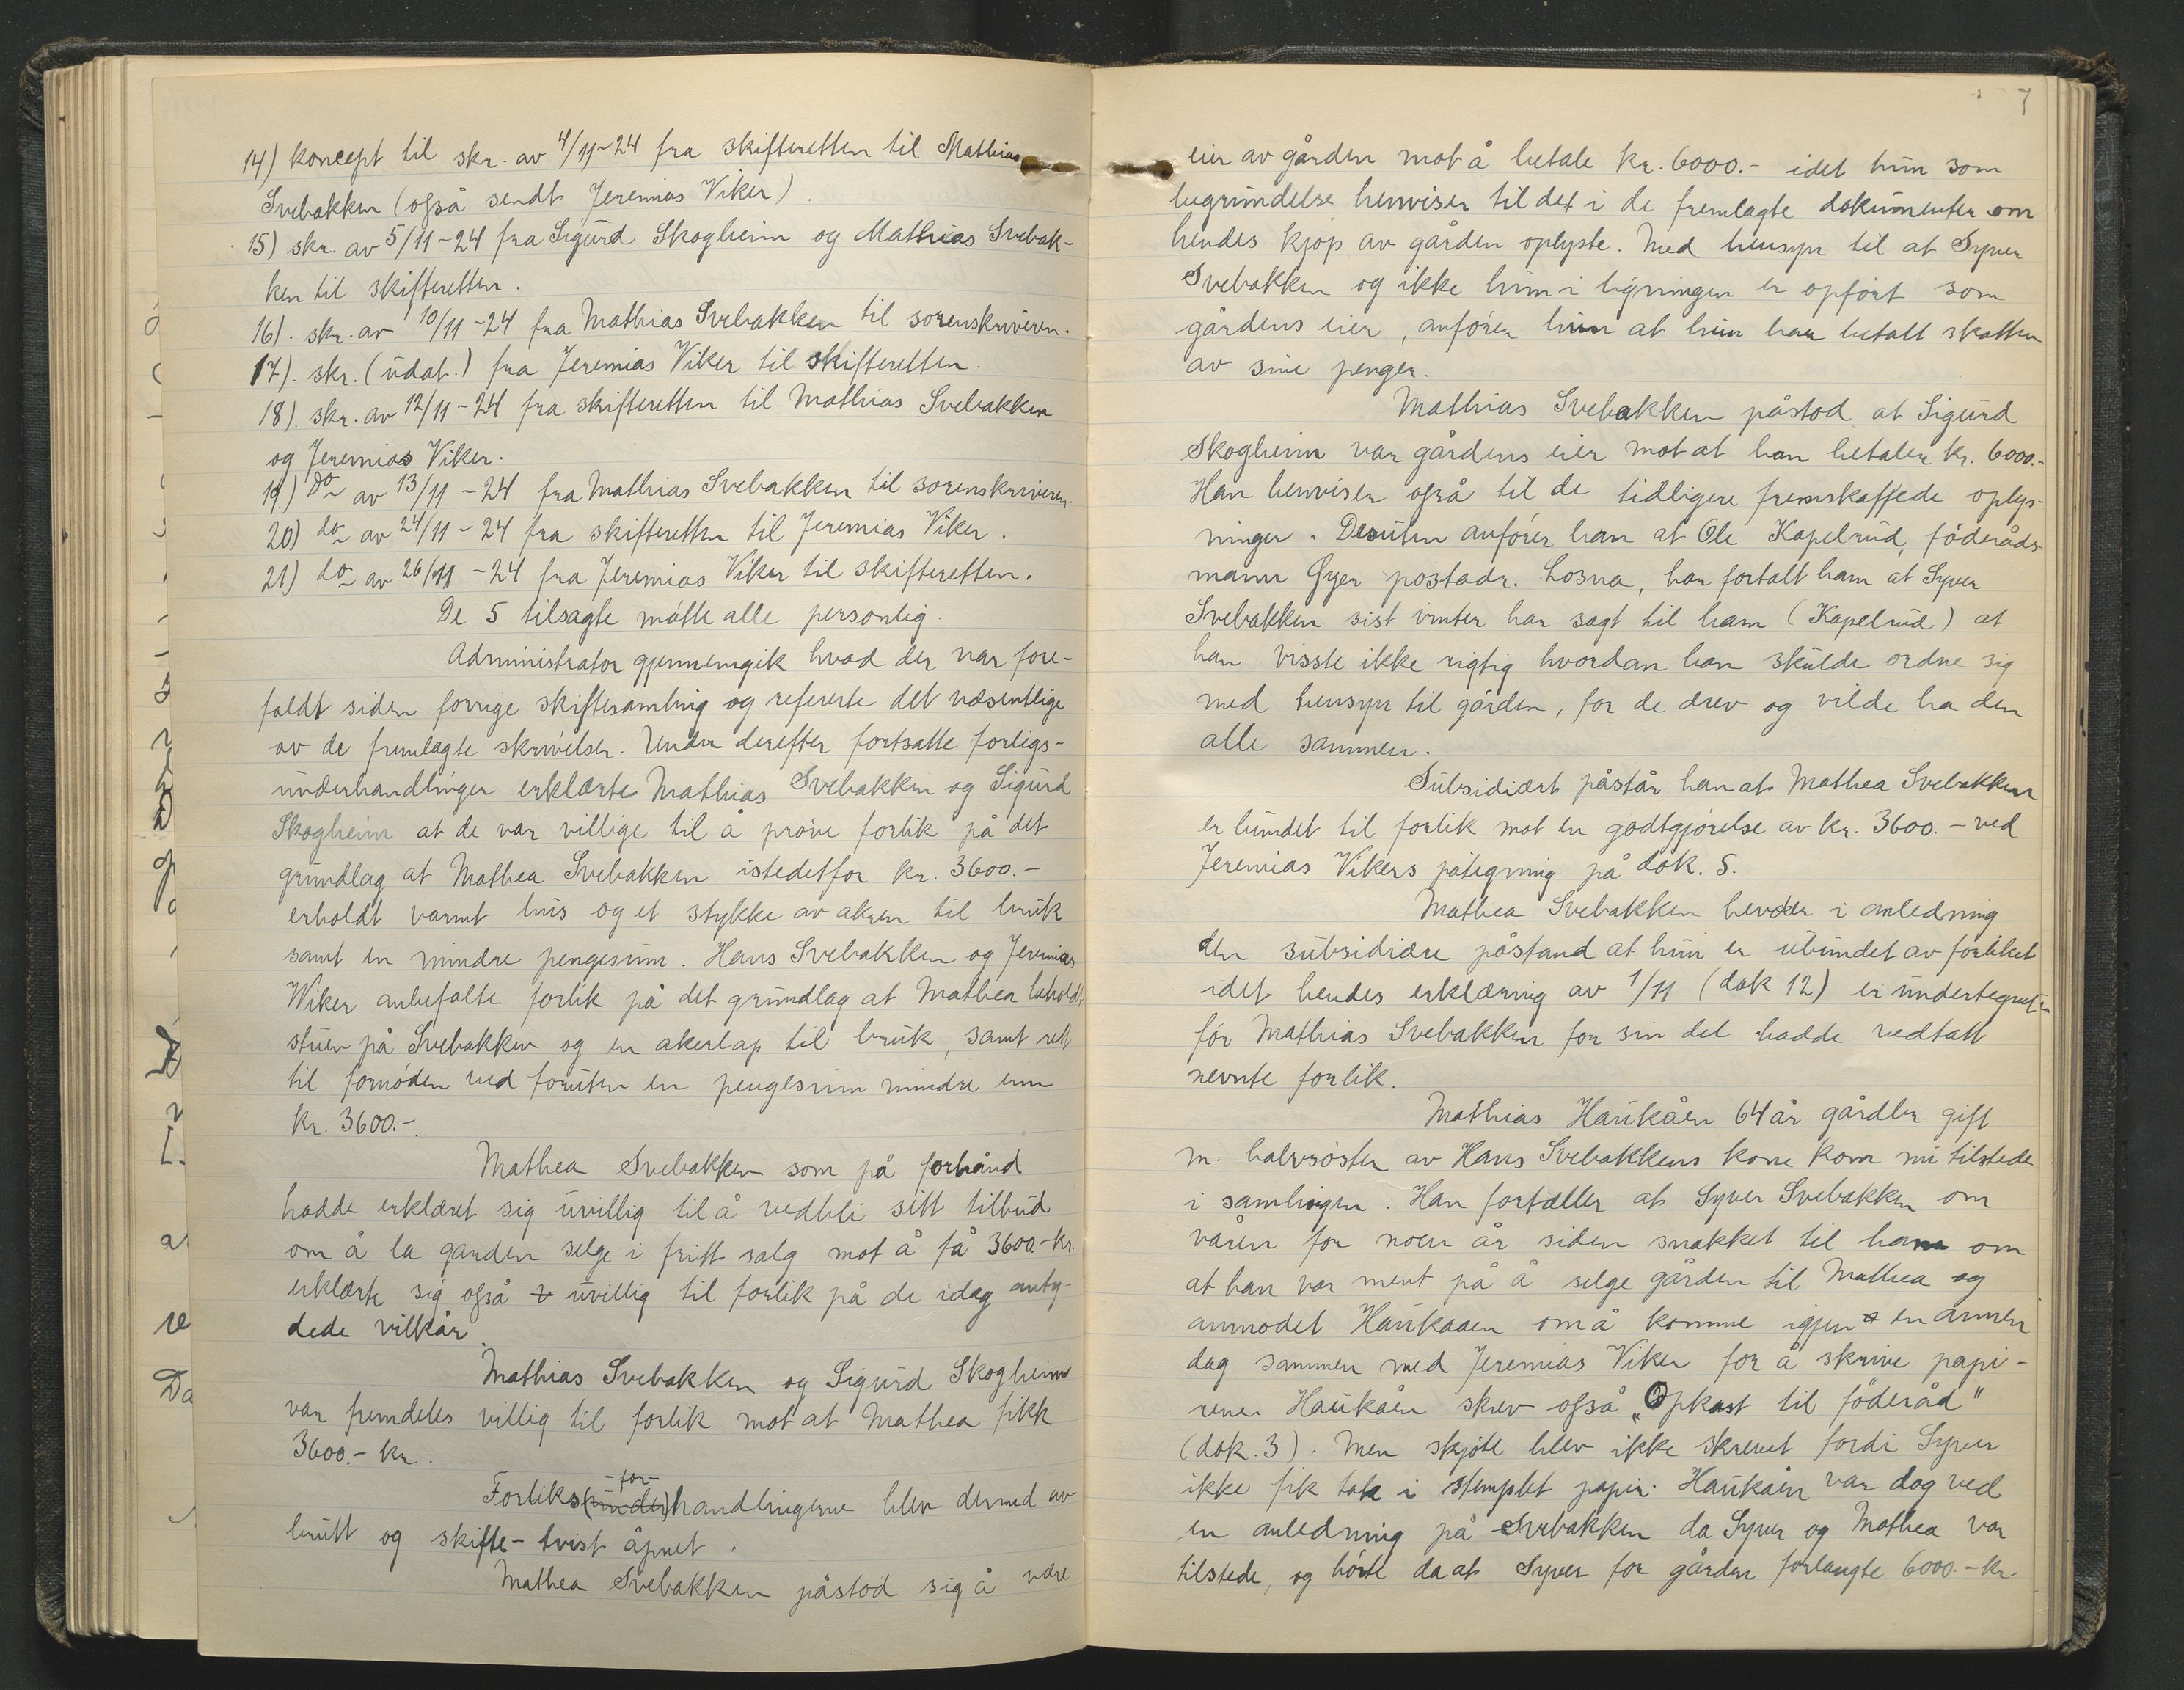 14) koncept til skr. av 4/11-24 fra skifteretten til Mathias
Svebakken (også sendt Jeremias Viker)
15) skr. av 5/11-24 fra Sigurd Skogheim og Mathias Svebak-
ken til skifteretten.
16). skr. av 10/11-24 fra Mathias Svebakken til sorenskriveren.
17). skr. (udat.) fra Jeremias Viker til skifteretten.
18). skr. av 12/11-24 fra skifteretten til Mathias Svebakken
og Jeremias Viker.
19.) do av 13/11-24 fra Mathias Svebakken til sorenskriveren.
20) do av 24/11-24 fra skifteretten til Jeremias Viker.
21) do av 26/11-24 fra Jeremias Viker til skifteretten.
De 5 tilsagte møtte alle personlig.
Administrator gjennemgik hvad der var fore-
faldt siden forrige skiftesamling og refererte det væsentlige
av de fremlagte skrivelser. Under derefter fortsatte forligs-
underhandlinger erklærte Mathias Svebakken og Sigurd
Skogheim at de var villige til å prøve forlik på det
grundlag at Mathea Svebakken istedetfor kr. 3600.-
erholdt varmt hus og et stykke av akren til bruk
samt en mindre pengesum. Hans Svebakken og Jeremias
Wiker anbefalte forlik på det grundlag at Mathea beholdt
stuen på Svebakken og en akerlap til bruk, samt ret
til fornøden ved foruten en pengesum mindre enn
kr. 3600.-
Mathea Svebakken som på forhånd
hadde erklæret sig uvillig til å vedbli sitt tilbud
om å la garden selge i fritt salg mot å få 3600.- kr.
erklærte sig også uvillig til forlik på de idag anty-
dede vilkår.
Mathias Svebakken og Sigurd Skogheim
var fremdeles villig til forlik mot at Mathea fikk
3600.- kr.
-for-
Forliks(under)handlingerne blev dermed av
brutt og skifte-tvist åpnet.
Mathea Svebakken påstod sig å være
7
eier av gården mot å betale kr. 6000.- idet hun som
begrundelse henviser til det i de fremlagte dokumenter om
hendes kjøp av gården oplyste. Med hensyn til at Syver
Svebakken og ikke hun i ligningen er opført som
gårdens eier, anfører hun at hun har betalt skatten
av sine penger.
Mathias Svebakken påstod at Sigurd
Skogheim var gårdens eier mot at han betaler kr. 6000.-
Han henviser også til de tidligere fremskaffede oplys-
ninger. Desuten anfører han at Ole Kapelrud, föderåds-
mann Øyer postadr. Losna, har fortalt ham at Syver
Svebakken sist vinter har sagt til ham (Kapelrud) at
han visste ikke rigtig hvordan han skulde ordne sig
med hensyn til gården, for de drev og vilde ha den
alle sammen.
Subsidiært påstår han at Mathea Svebakken
er bundet til forlik mot en godtgjørelse av kr. 3600.- ved
Jeremias Vikers påtegning på dok. 5.
Mathea Svebakken hevder i anledning
den subsidiære påstand at hun er ubundet av forliket
idet hendes erklæring av 1/11 (dok 12) er undertegnet
før Mathias Svebakken for sin del hadde vedtatt
nevnte forlik.
Mathias Haukåen 64 år gårdbr. gift
m. halvsøster av Hans Svebakkens kone kom nu tilstede
i samlingen. Han fortæller at Syver Svebakken om
våren for noen år siden snakket til ham om
at han var ment på å selge gården til Mathea og
anmodet Haukaaen om å komme igjen en annen
dag sammen med Jeremias Viker for å skrive papi-
rene. Haukåen skrev også „Opkast til föderåd"
(dok. 3). Men skjøte blev ikke skrevet fordi Syver
ikke fik tak i stemplet papir. Haukåen var dog ved
en anledning på Svebakken da Syver og Mathea var
tilstede, og hørte da at Syver for gården forlangte 6000.- kr.